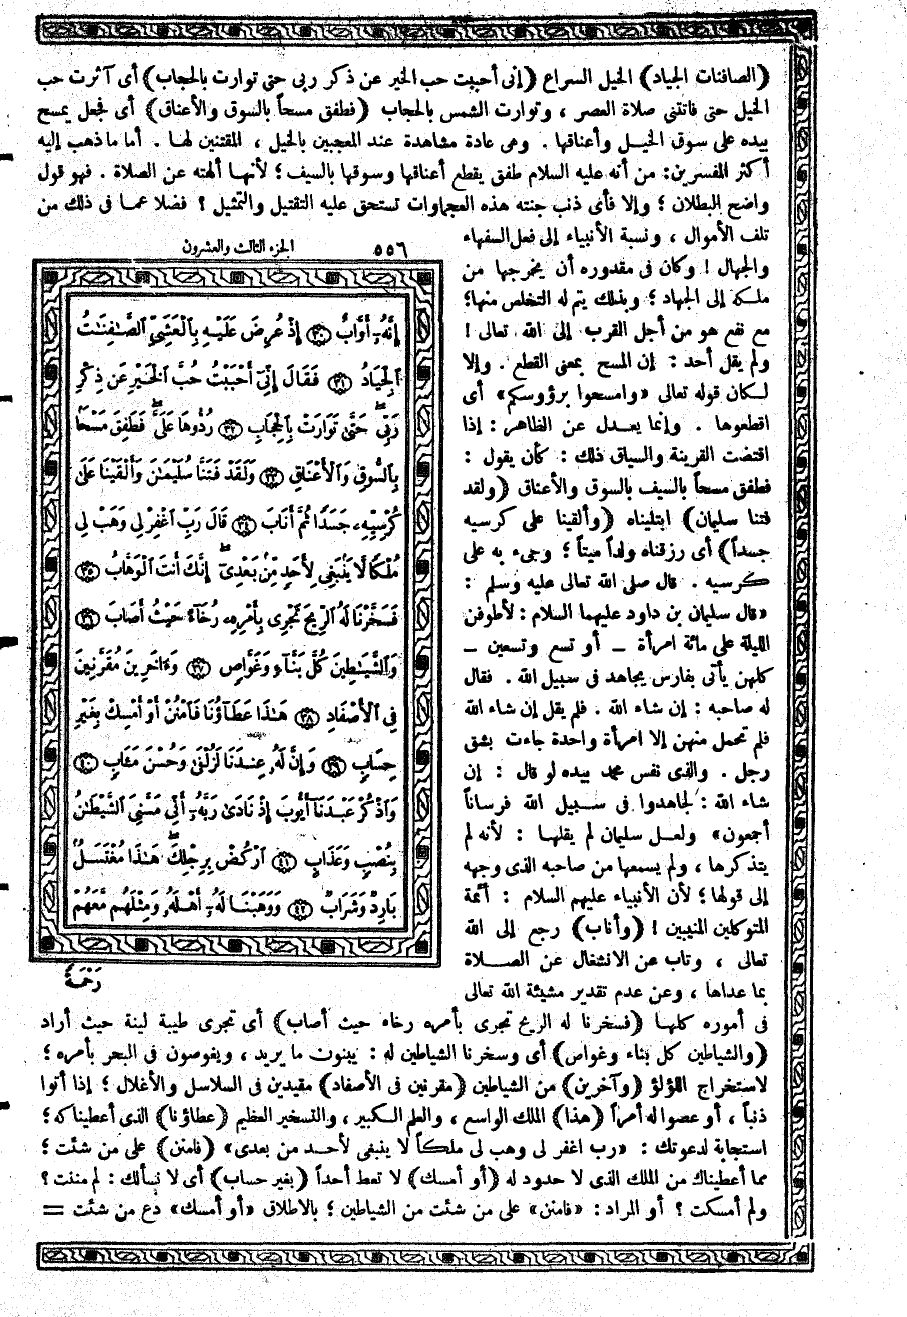 (الصافنات الجياد) الخيل السراع (إنى أحببت حب الخير عن ذكر ربى حتى توارت بالحجاب) أى آثرت حب
الخيل حتى فاتتنى صلاة العصر ، وتوارت الشمس بالحجاب (فطفق مسحاً بالسوق والأعناق) أى فجعل يمسح
بيده على سوق الخيل وأعناقها . وهى عادة مشاهدة عند المعجبين بالخيل ، المقتنين لها . أما ما ذهب إليه
أكثر المفسرين: من أنه عليه السلام طفق يقطع أعناقها وسوقها بالسيف ؛ لأنها ألهته عن الصلاة . فهو قول
واضح البطلان ؛ وإلا فأى ذنب جنته هذه العجماوات تستحق عليه التقتيل والتمثيل ؟ فضلا عما فى ذلك من
تلف الأموال ، ونسبة الأنبياء إلى فعل السفهاء
والجهال ! وكان فى مقدوره أن يخرجها من
ملكه إلى الجهاد ؛ وبذلك يتم له التخلص منها؛
مع نفع هو من أجل القرب إلى الله تعالى !
ولم يقل أحد : إن المسح بمعنى القطع . وإلا
لكان قوله تعالى «وامسحوا برؤوسكم» أى
اقطعوها . وإنما يعدل عن الظاهر : إذا
اقتضت القرينة والسياق ذلك : كأن يقول :
فطفق مسحاً بالسيف بالسوق والأعناق (ولقد
فتنا سليمان) ابتليناه (وألقينا على كرسيه
جسداً) أى رزقناه ولداً ميتاً ؛ وجىء به على
كرسيه . قال صلى الله تعالى عليه وسلم :
«قال سليمان بن داود عليهما السلام : لأطوفن
الليلة على مائة امرأة – أو تسع وتسعين –
كلهن يأتى بفارس يجاهد فى سبيل الله . فقال
له صاحبه : إن شاء الله . فلم يقل إن شاء الله
فلم تحمل منهن إلا امرأة واحدة جاءت بشق
رجل . والذى نفس محمد بيده لو قال : إن
شاء الله : لجاهدوا فى سبيل الله فرساناً
أجمعون» ولعل سليمان لم يقلها : لأنه لم
يتذكرها ، ولم يسمعها من صاحبه الذى وجهه
إلى قولها ؛ لأن الأنبياء عليهم السلام : أئمة
المتوكلين المنيبين ! (وأناب) رجع إلى الله
تعالى ، وتاب عن الانشغال عن الصلاة
بما عداها ، وعن عدم تقدير مشيئة الله تعالى
فى أموره كلها (فسخرنا له الريح تجرى بأمره رخاء حيث أصاب) أى تجرى طيبة لينة حيث أراد
(والشياطين كل بناء وغواص) أى وسخرنا الشياطين له : يبنون ما يريد ، ويغوصون فى البحر بأمره ؛
لاستخراج اللؤلؤ (وآخرين) من الشياطين (مقرنين فى الأصفاد) مقيدين فى السلاسل والأغلال ؛ إذا أتوا
ذنباً ، أو عصوا له أمراً (هذا) الملك الواسع ، والعلم الكبير ، والتسخير العظيم (عطاؤنا) الذى أعطيناكه ؛
استجابة لدعوتك : «رب اغفر لى وهب لى ملكاً لا ينبغى لأحد من بعدى» (فامنن) على من شئت ؛
مما أعطيناك من الملك الذى لا حدود له (أو أمسك) لا تعط أحداً (بغير حساب) أى لا نسألك : لم مننت ؟
ولم أمسكت ؟ أو المراد : «فامنن» على من شئت من الشياطين ؛ بالاطلاق «أو أمسك» دع من شئت =
٥٥٦ الجزء الثالث والعشرون
إِنَّهُۥٓ أَوَّابٌ ٣٠ إِذْ عُرِضَ عَلَيْهِ بِالْعَشِيِّ الصَّٰفِنَٰتُ
الْجِيَادُ ٣١ فَقَالَ إِنِّىٓ أَحْبَبْتُ حُبَّ الْخَيْرِ عَن ذِكْرِ
رَبِّى حَتَّىٰ تَوَارَتْ بِالْحِجَابِ ٣٢ رُدُّوهَا عَلَىَّ فَطَفِقَ مَسْحًا
بِالسُّوقِ وَالْأَعْنَاقِ ٣٣ وَلَقَدْ فَتَنَّا سُلَيْمَٰنَ وَأَلْقَيْنَا عَلَىٰ
كُرْسِيِّهِۦ جَسَدًا ثُمَّ أَنَابَ ٣٤ قَالَ رَبِّ اغْفِرْ لِى وَهَبْ لِى
مُلْكًا لَّا يَنۢبَغِى لِأَحَدٍ مِّنۢ بَعْدِىٓ إِنَّكَ أَنتَ الْوَهَّابُ ٣٥
فَسَخَّرْنَا لَهُ الرِّيحَ تَجْرِى بِأَمْرِهِۦ رُخَآءً حَيْثُ أَصَابَ ٣٦
وَالشَّيَٰطِينَ كُلَّ بَنَّآءٍ وَغَوَّاصٍ ٣٧ وَءَاخَرِينَ مُقَرَّنِينَ
فِى الْأَصْفَادِ ٣٨ هَٰذَا عَطَآؤُنَا فَامْنُنْ أَوْ أَمْسِكْ بِغَيْرِ
حِسَابٍ ٣٩ وَإِنَّ لَهُۥ عِندَنَا لَزُلْفَىٰ وَحُسْنَ مَـَٔابٍ ٤٠
وَاذْكُرْ عَبْدَنَآ أَيُّوبَ إِذْ نَادَىٰ رَبَّهُۥٓ أَنِّى مَسَّنِىَ الشَّيْطَٰنُ
بِنُصْبٍ وَعَذَابٍ ٤١ ارْكُضْ بِرِجْلِكَ هَٰذَا مُغْتَسَلٌۢ
بَارِدٌ وَشَرَابٌ ٤٢ وَوَهَبْنَا لَهُۥٓ أَهْلَهُۥ وَمِثْلَهُم مَّعَهُمْ
رَحْمَةً